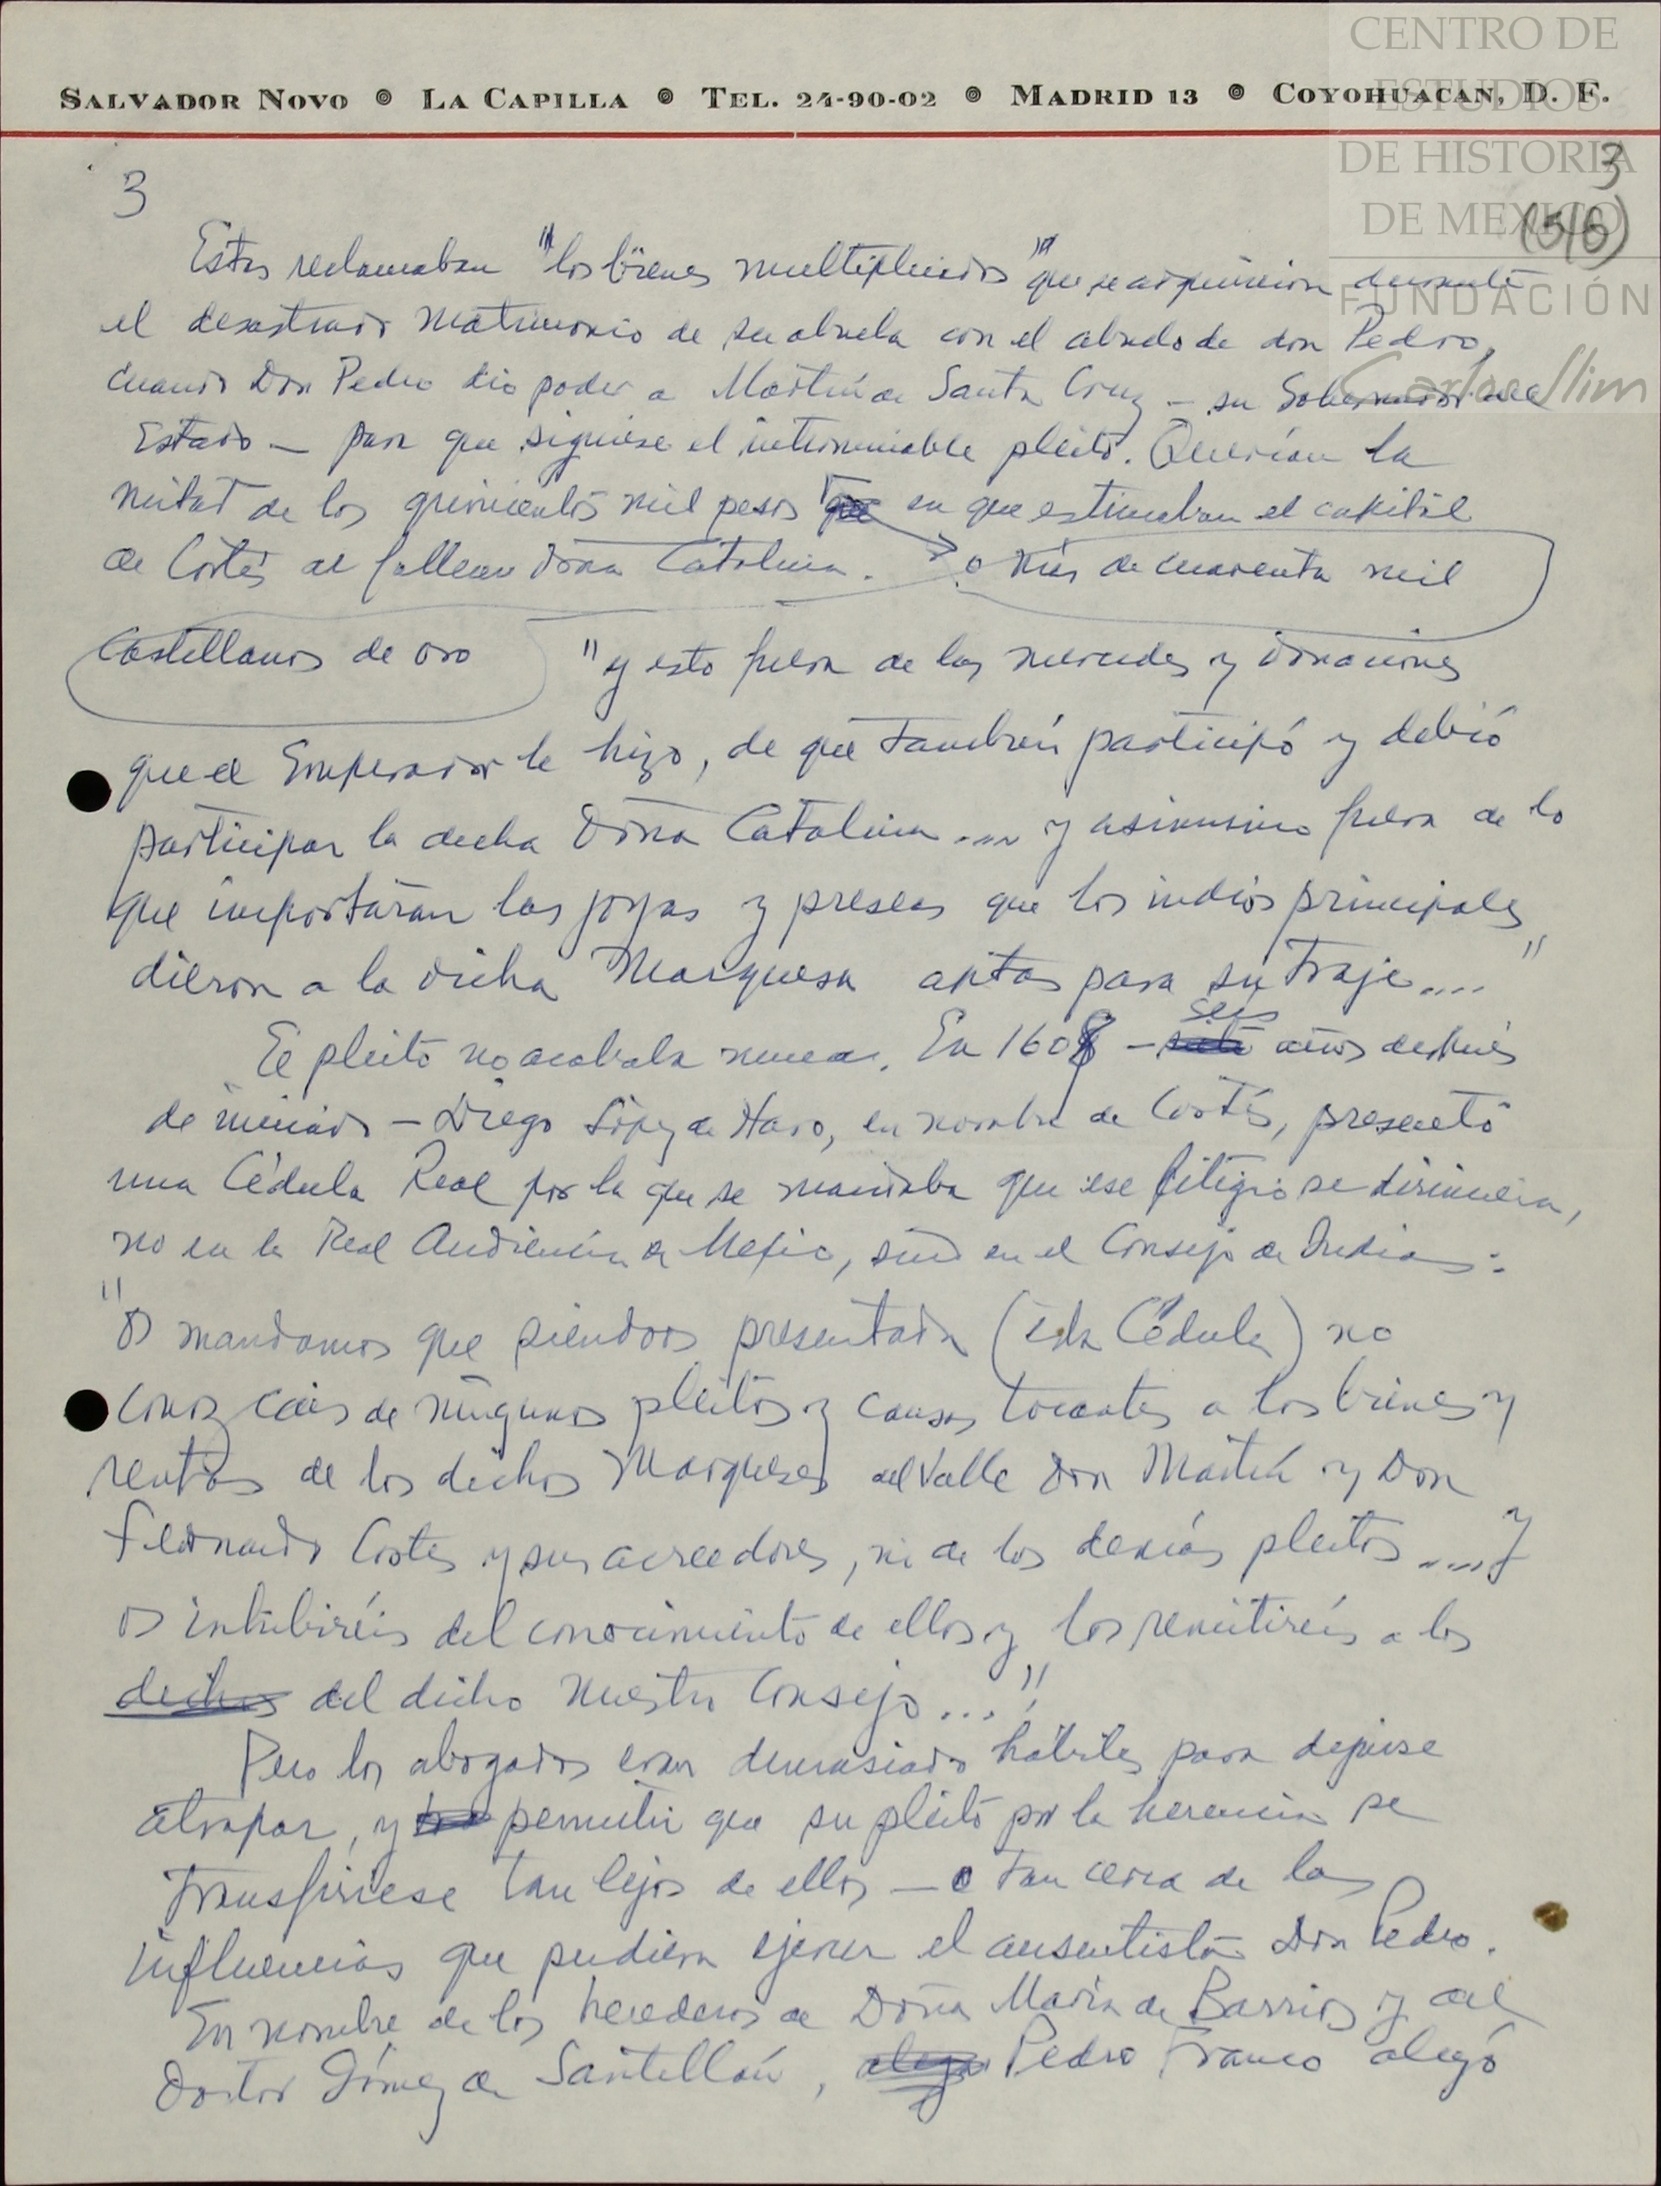 SALVADOR NOVO ◎ LA CAPILLA ◎ TEL. 24-90-02 ◎ MADRID 13 ◎ COYOHUACAN, D. F.
CENTRO DE
ESTUDIOS
DE HISTORIA
DE MEXICO
FUNDACIÓN
Carlos Slim
3
3
(516)
Estos reclamaban "los bienes multiplicados" que se adquirieron durante
el desastrado matrimonio de su abuela con el abuelo de don Pedro,
cuando Don Pedro dio poder a Martín de Santa Cruz — su Gobernador del
Estado — para que siguiese el interminable pleito. Querían la
mitad de los quinientos mil pesos que en que estimaban el capital
de Cortés al fallecer doña Catalina. o más de cuarenta mil
Castellanos de oro "y esto fuera de las mercedes y donaciones
que el Emperador le hizo, de que también participó y debió
participar la dicha Doña Catalina.... y asimismo fuera de lo
que importaran las joyas y preseas que los indios principales
dieron a la dicha Marquesa aptas para su traje...."
seis
El pleito no acababa nunca. En 1608 — siete años después
de iniciado — Diego López de Haro, en nombre de Cortés, presentó
una Cédula Real por la que se mandaba que ese litigio se dirimiera,
no en la Real Audiencia de Mexico, sino en el Consejo de Indias:
"Os mandamos que siendoos presentada (esta Cédula) no
conozcais de ningunos pleitos y causas tocantes a los bienes y
rentas de los dichos Marqueses del Valle Don Martín y Don
Fernando Cortes y sus acreedores, ni de los demás pleitos..... y
os inhibiréis del conocimiento de ellos y los remitiréis a los
dichos del dicho nuestro Consejo..."
Pero los abogados eran demasiado hábiles para dejarse
atrapar, y no permitir que su pleito por la herencia se
transfiriese tan lejos de ellos — o tan cerca de las
influencias que pudiera ejercer el ausentista Don Pedro.
En nombre de los herederos de Doña María de Barrios y del
Doctor Gómez de Santillán, alega Pedro Franco alegó